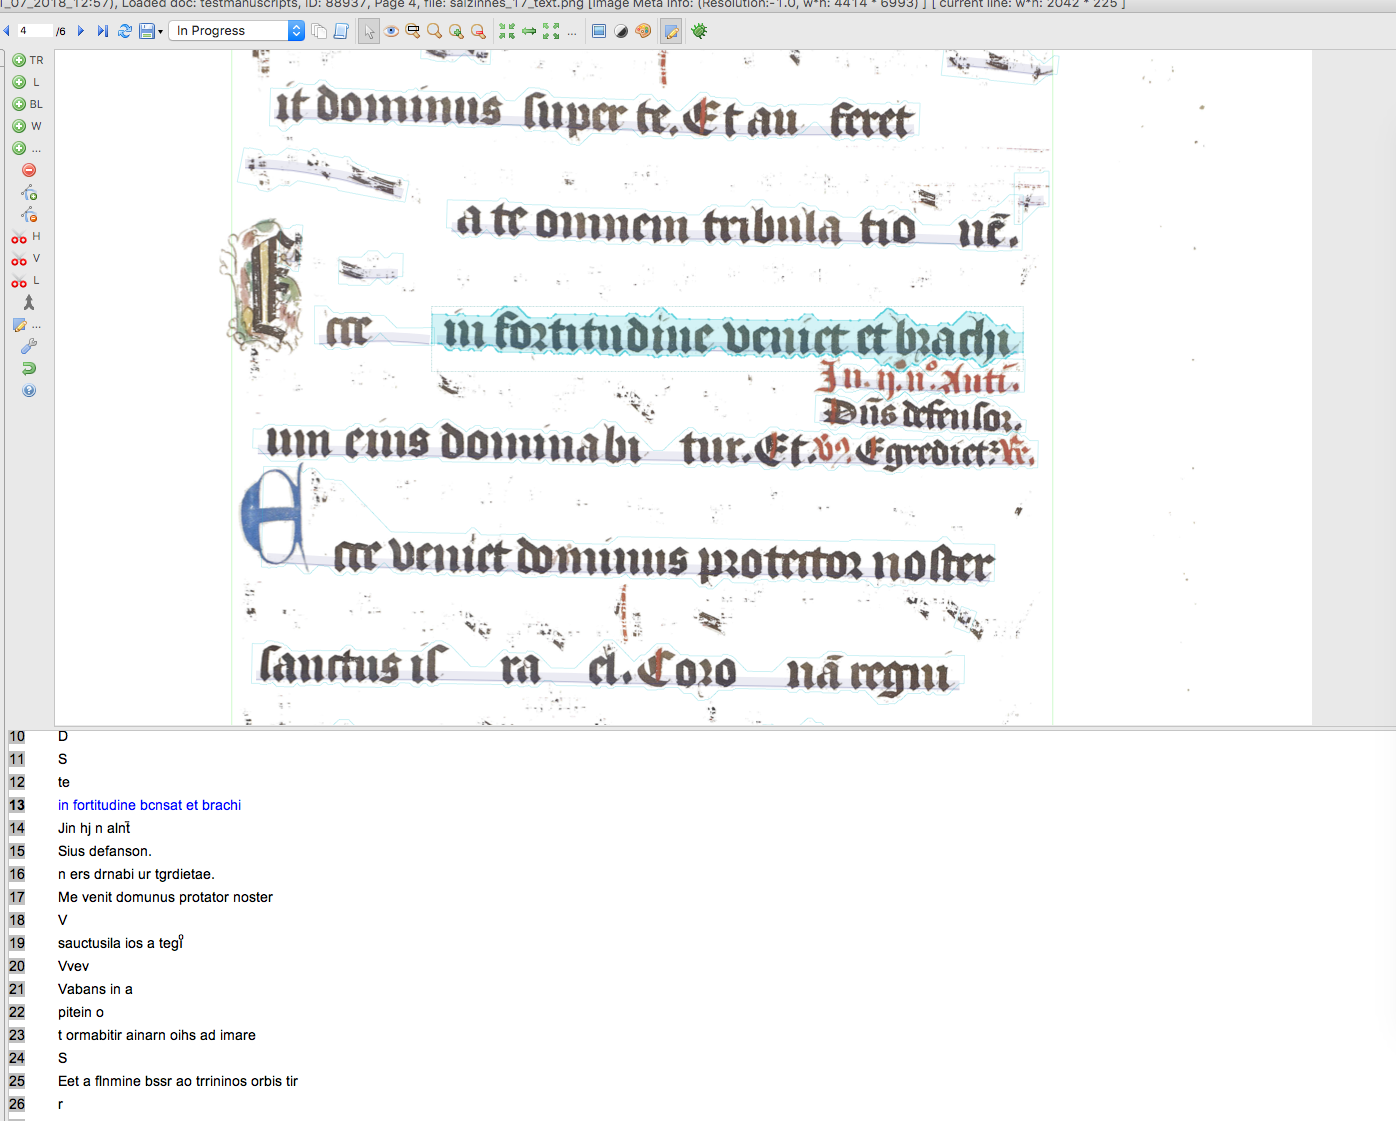 1_07_2018_12:57), Loaded doc: testmanuscripts, ID: 88937, Page 4, file: salzinnes_17_text.png [Image Meta Info: (Resolution:-1.0, w*h: 4414 * 6993) ] [ current line: w*h: 2042 * 225 ]
4 /6 In Progress ...
TR
L
BL
W
...
H
V
L
...
it dominus super te. Et au feret
a te omnem tribula tio nē.
E
cce in fortitudine veniet et brachi
In. ij. n°. Anti.
Dn̄s defensor.
um eius dominabi tur. Et. Egrediet
E
cce veniet dominus protector noster
sanctus is ra el. Coro nā regni
10 D
11 S
12 te
13 in fortitudine bcnsat et brachi
14 Jin hj n alnt̄
15 Sius defanson.
16 n ers drnabi ur tgrdietae.
17 Me venit domunus protator noster
18 V
19 sauctusila ios a tegi
20 Vvev
21 Vabans in a
22 pitein o
23 t ormabitir ainarn oihs ad imare
24 S
25 Eet a flnmine bssr ao trrininos orbis tir
26 r